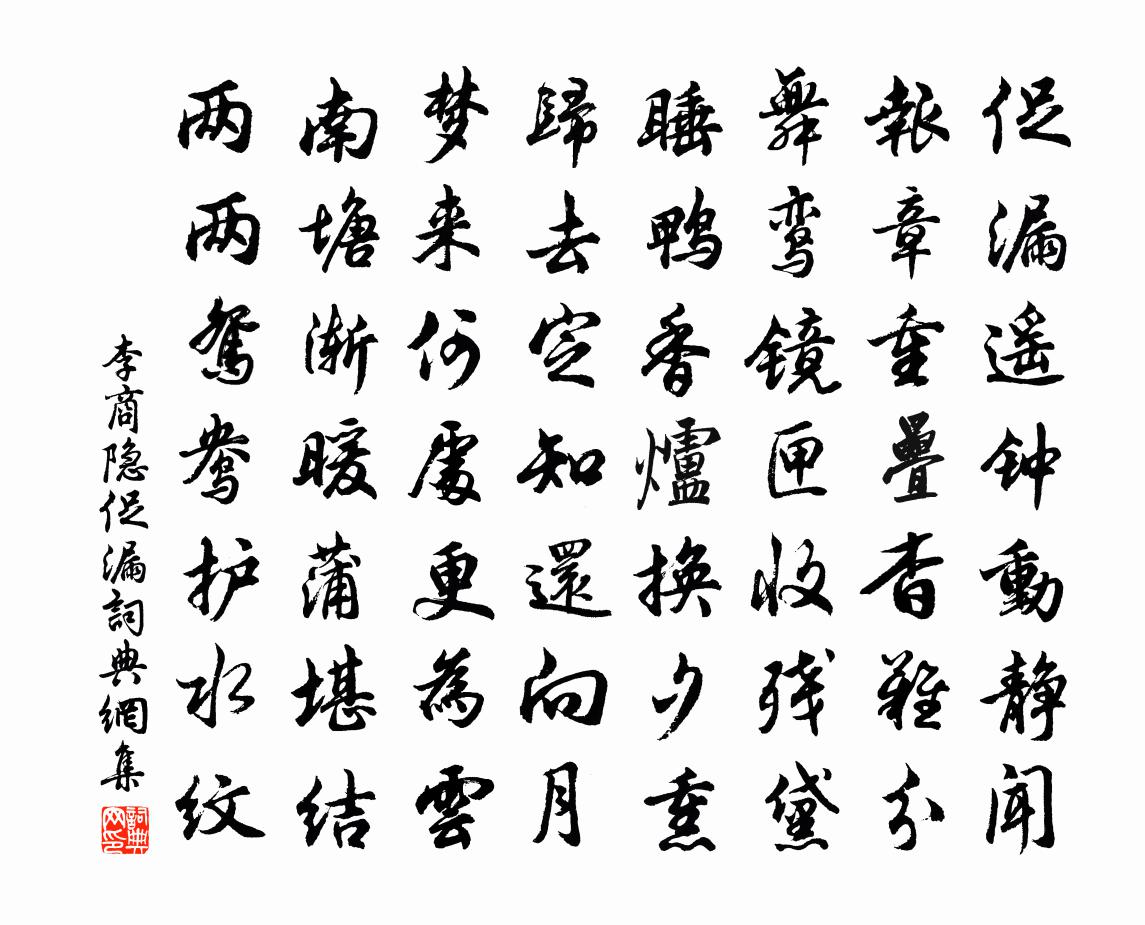 促漏遥钟動静闻
報章重疊杳難分
舞鸾镜匣收残黛
睡鸭香爐换夕熏
歸去定知還向月
梦来何處更為雲
南塘渐暖蒲堪结
两两鸳鸯护水纹
李商隐促漏詞典網集
詞典网印